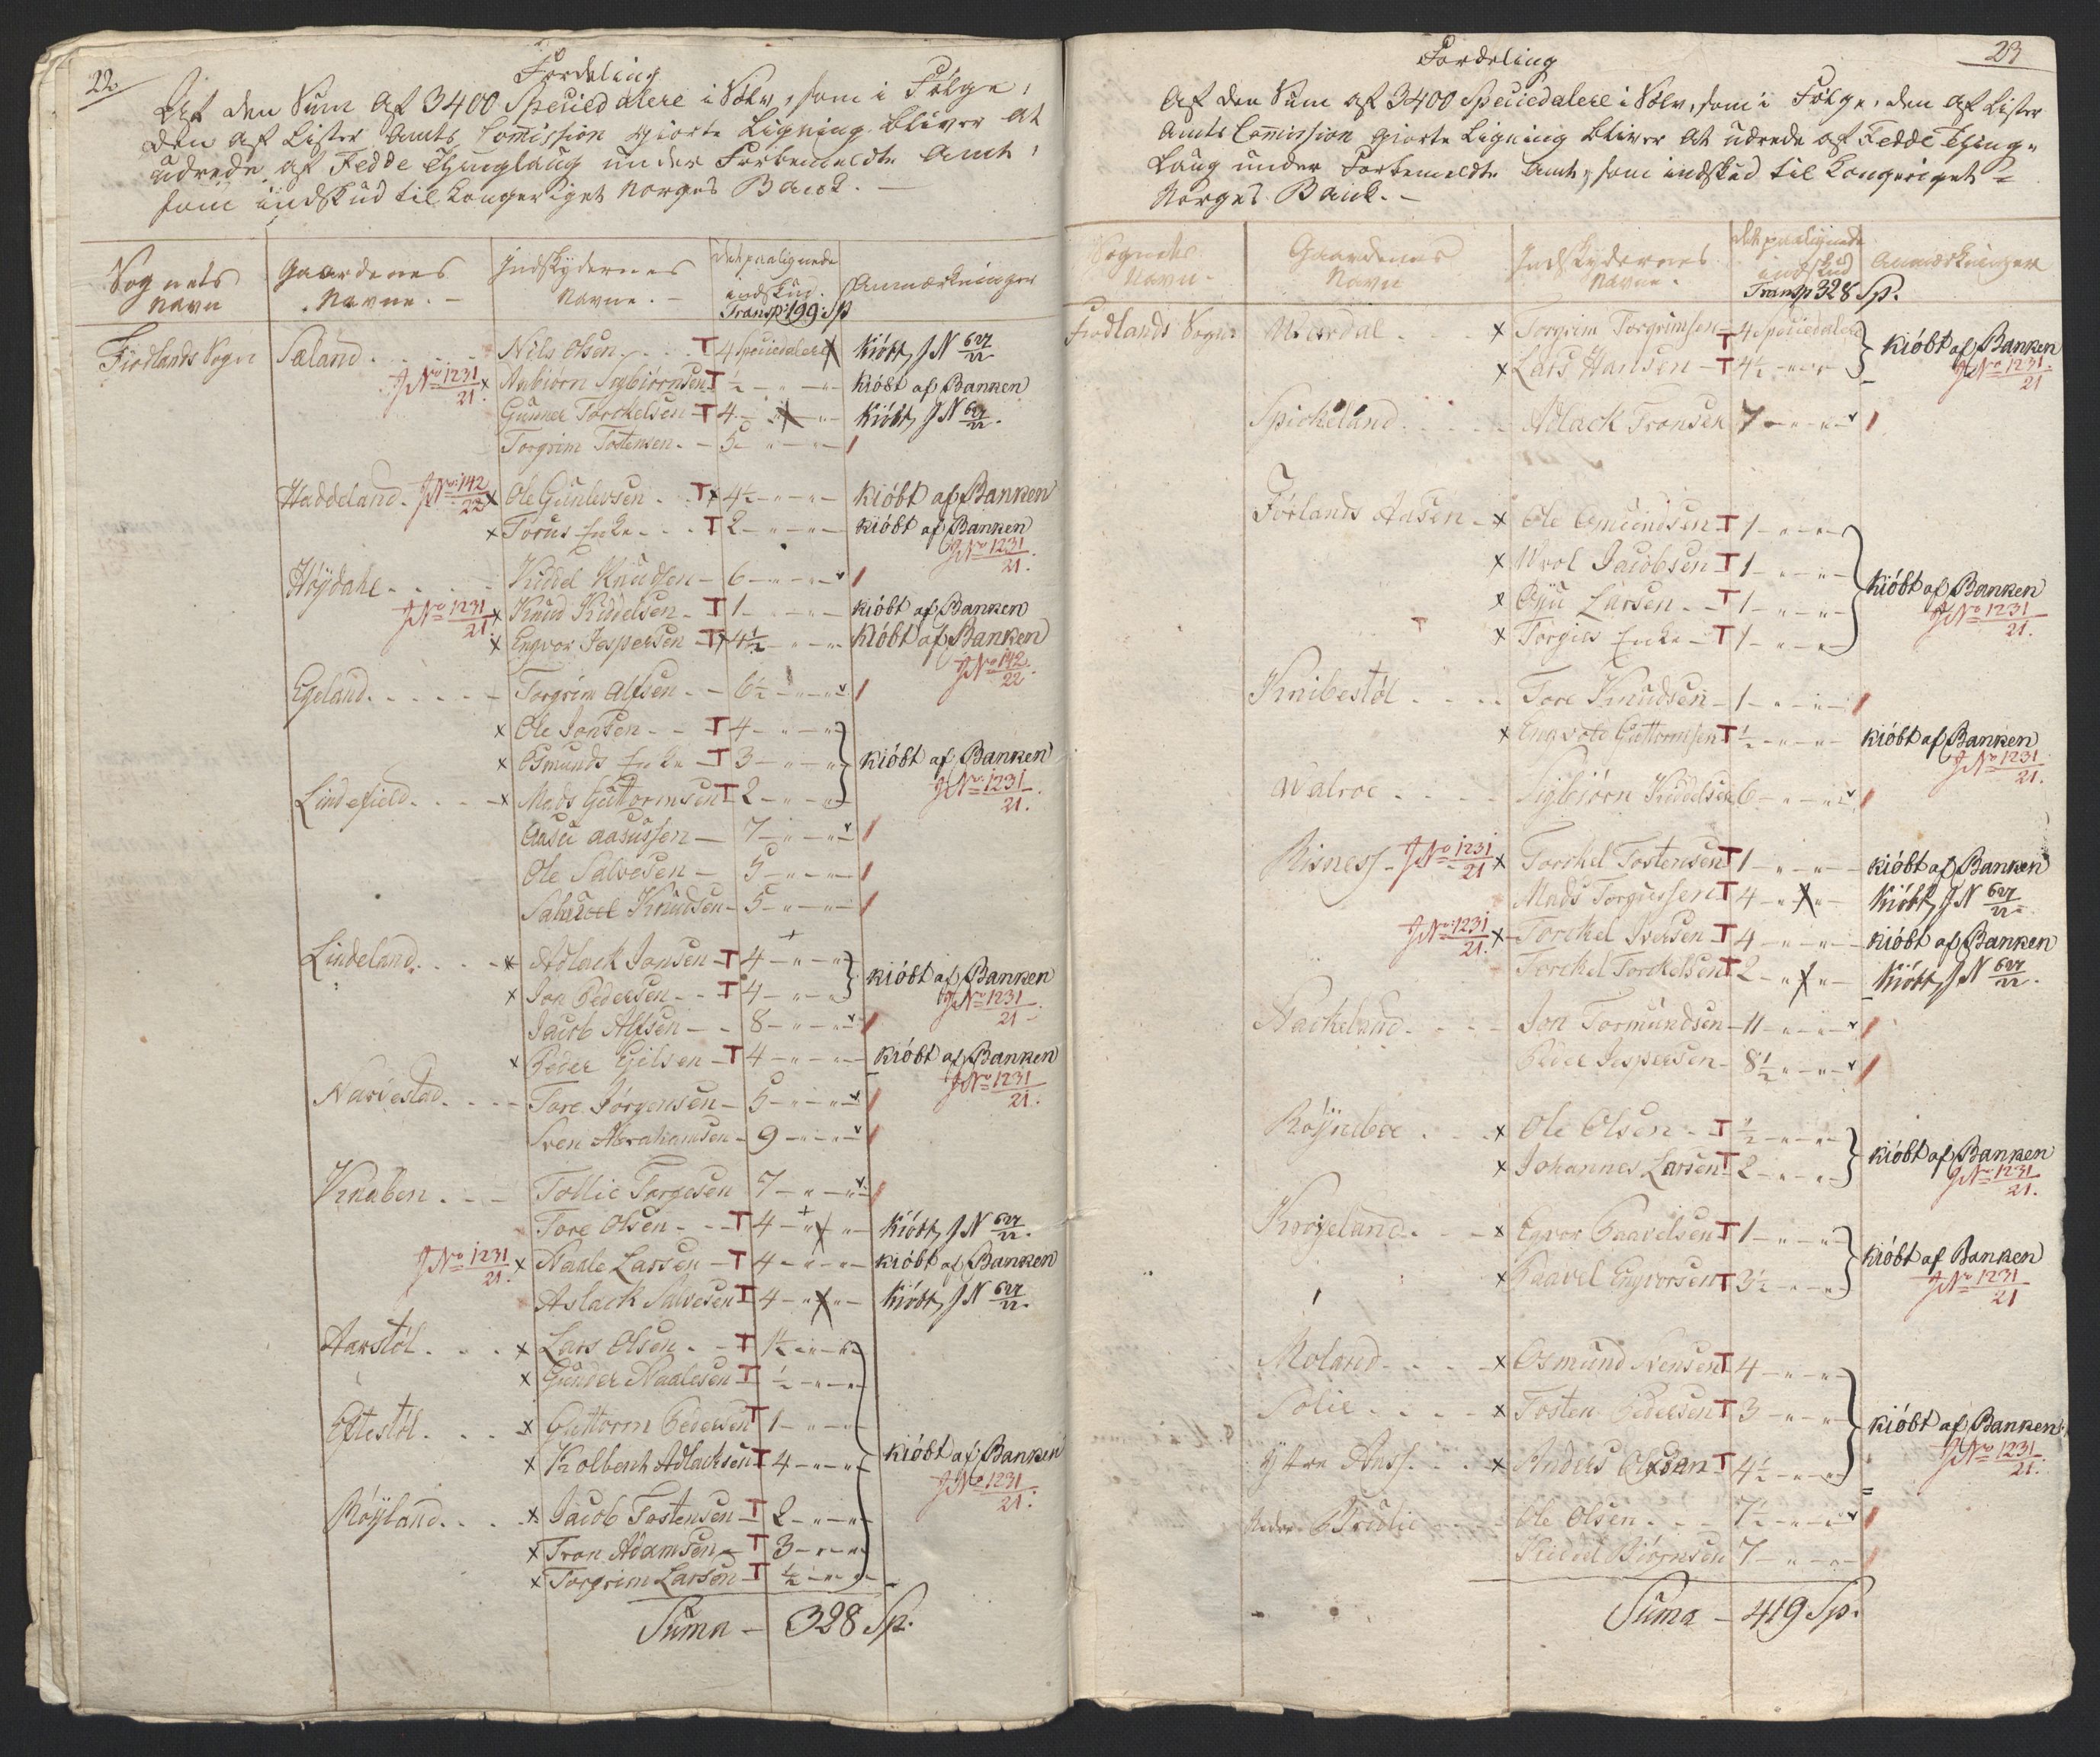 22.
Fordeling
Af den Sum af 3400 Speciedalere i Sølv, som i Følge,
den af Lister Amts Commission giorte Ligning bliver at
udrede af Fedde Thinglaug under Forbemeldte Amt,
som indskud til Kongeriget Norges Banck. —
Sognets Navn
Gaardenes Navne. —
Indskydernes Navne. —
det paalignede indskud.
Anmærkninger
Transp: 199 Sp
Fiodlands Sogn Sæland . . . . Nils Olsen . . . T 4 Speciedalere kióbt, J N 627/22
J No 1231/21. x Anbiørn Sigbiørnsen T ½ — " — " — kióbt af Banken
Gunner Torckelsen T 4 — " — " — kióbt, J N 627/22.
Torgrim Tostensen. — 5 — " — " —
Haddeland. J No: 142/22 x Ole Gunlevsen . T x 4½ — " — " — kióbt af Banken
x Torus Enke . . . T 2 — " — " — kióbt af Banken
J No 1231/21.
Høÿdahl . . . . Kiddel Knudsen — 6 — " — " —
J No 1231/21. x Knud Kiddelsen. T 1 — " — " — kióbt af Banken
x Engvor Jespersen T x 4½ — " — " — kióbt af Banken
J No 142/22.
Egeland. . . . . Torgrim Alfsen . — 6½ — " — " —
x Ole Jonsen . . T 4 — " — " —
x Osmunds Enke T 3 — " — " — kióbt af Banken
J No: 1231/21.
Lindefield. . . . x Mads Guttormsen T 2 — " — " —
Aasu Aasussen — 7 — " — " —
Ole Salvesen — 5 — " — " —
Samuel Knudsen — 5 — " — " —
Lindeland. . . . x Adlack Jonsen T 4 — " — " —
x Jon Pedersen . . T 4 — " — " — kióbt af Banken
J No 1231/21
Jacob Alfsen — 8 — " — " —
x Peder Egilsen T 4 — " — " — kióbt af Banken
J No 1231/21.
Narvestad. . . . Tore Jørgensen — 5 — " — " —
Sven Abrahamsen — 9 — " — " —
Knaben . . . Tollie Torgesen 7 — " — " —
Tore Olsen . . T 4 — " — " — kióbt, J N 627/22.
J No 1231/21. x Naale Larsen T 4 — " — " — kióbt af Banken
Aslack Salvesen T 4 — " — " — kióbt, J N 627/22.
Aarstøl. . . . x Lars Olsen . . T 1½ — " — " —
x Gunder Naalesen T ½ — " — " —
Eftestøl. . . . x Guttorm Pedersen T 1 — " — " —
x Kolbent Adlacksen T 4 — " — " — kióbt af Banken
J No 1231/21.
Røÿland. . . . x Jacob Tostensen T 2 — " — " —
x Tron Adamsen T 3 — " — " —
x Torgrim Larsen T ½ — " — " —
Suma — 328 Sp.
23
Fordeling
Af den Sum af 3400 Speciedalere i Sølv, som i Følge, den af Lister
Amts Commission giorte Ligning bliver at udrede af Fedde Thing=
laug under Forbemeldte Amt, som indskud til Kongeriget
Norges Bank. —
Sognets Navn
Gaardenes Navne
Indskydernes Navne.
det paalignede indskud
Anmærkninger
Transp 328 Sp.
Fiodlands Sogn . . . x Torgrim Torgrimsen T 4 Speciedalere
x Lars Hansen T 4½ — " — " — kióbt af Banken
J No 1231/21
Spickeland . . . . Adlack Tronsen 7 — " — " —
Førlands Aasen x Ole Omundsen T 1 — " — " —
x Wrol Jacobsen T 1 — " — " —
kióbt af Banken
x Aÿu Larsen . . T 1 — " — " —
J No 1231/21.
x Torgies Enke T 1 — " — " —
Knibestøl . . . . Tore Knudsen — 1 — " — " —
x Engvold Guttormsen T ½ — " — " — kióbt af Banken
J No 1231/21.
Walroe . . . . Sigbiørn Kiddelsen 6 — " — " —
Risness J No 1231/21 x Torckel Tostensen T 1 — " — " — kióbt af Banken
Mads Torgiessen T 4 — " — kióbt, J N 627/22
J No: 1231/21. x Torckel Iversen T 4 — " — " — kióbt af Banken
Torckel Torckelsen T 2 — " — kióbt, J N 627/22.
Nackeland. . . . Jon Tormundsen — 11 — " — " —
Peder Jespersen — 8½ — " — " —
Røÿneboe . . . x Ole Olsen . T ½ — " — " —
x Johannes Larsen T 2 — " — " kióbt af Banken
J No 1231/21.
Krogeland . . . x Egvor Paavelsen T 1 — " — "
kióbt af Banken
x Paavel Engvorsen T 3½ — " — " J No 1231/21
Moland . . . . x Osmund Svensen T 4 — " — "
Solie . . . . x Tosten Pedersen T 3 — " — " kióbt af Banken
J No 1231/21.
Ÿttre Aas . . . x Anders Olsen T 4½ — " — "
Nedre Trælie . . . Ole Olsen . . . 7½ — " — " —
Kiddel Biørnsen 7 — " — " —
Suma — 419 Sp.